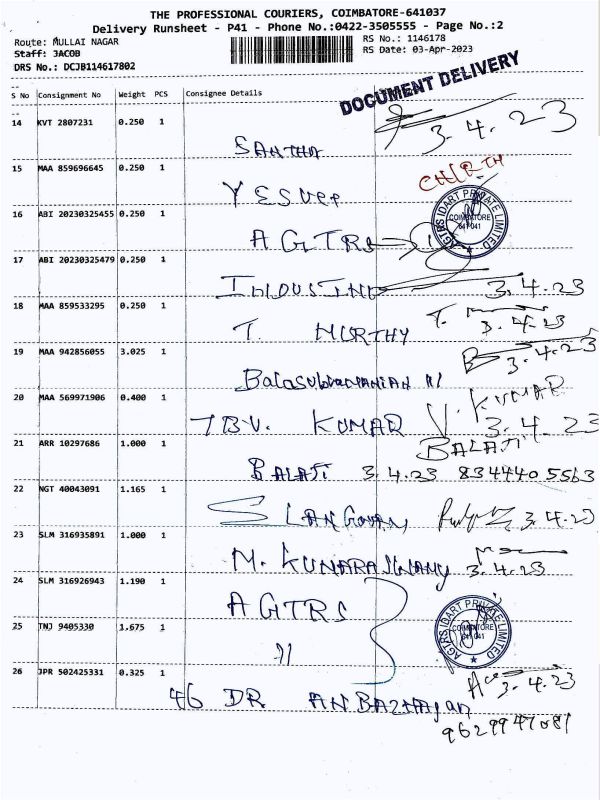 THE PROFESSIONAL COURIERS, COIMBATORE-641037
Delivery Runsheet - P41 - Phone No.:0422-3505555 - Page No.:2
Route: MULLAI NAGAR
RS No.: 1146178
Staff: JACOB
RS Date: 03-Apr-2023
DRS No.: DCJB114617802
DOCUMENT DELIVERY
S No Consignment No Weight PCS Consignee Details
14 KVT 2807231 0.250 1
3.4.23
SANTHA
15 MAA 859696645 0.250 1
16 ABI 20230325455 0.250 1
AGTRS IDART PRIVATE LIMITED
COIMBATORE
641 041
AGTRS
17 ABI 20230325479 0.250 1
3.4.23
18 MAA 859533295 0.250 1
T. MURTHY T. 3.4.23
19 MAA 942856055 3.025 1
3.4.23
Balasubramanian
20 MAA 569971906 0.400 1
V. KUMAR
T.B.V. KUMAR 3.4.23
21 ARR 10297686 1.000 1
BALAJI
BALAJI 3.4.23 8344405563
22 NGT 40043091 1.165 1
3.4.23
23 SLM 316935891 1.000 1
M. KUMARASWAMY 3.4.23
24 SLM 316926943 1.190 1
AGTRS
25 TNJ 9405330 1.675 1
AGTRS IDART PRIVATE LIMITED
COIMBATORE
641 041
26 JPR 502425331 0.325 1
3.4.23
46 DR ANBAZHAgan
9629947081